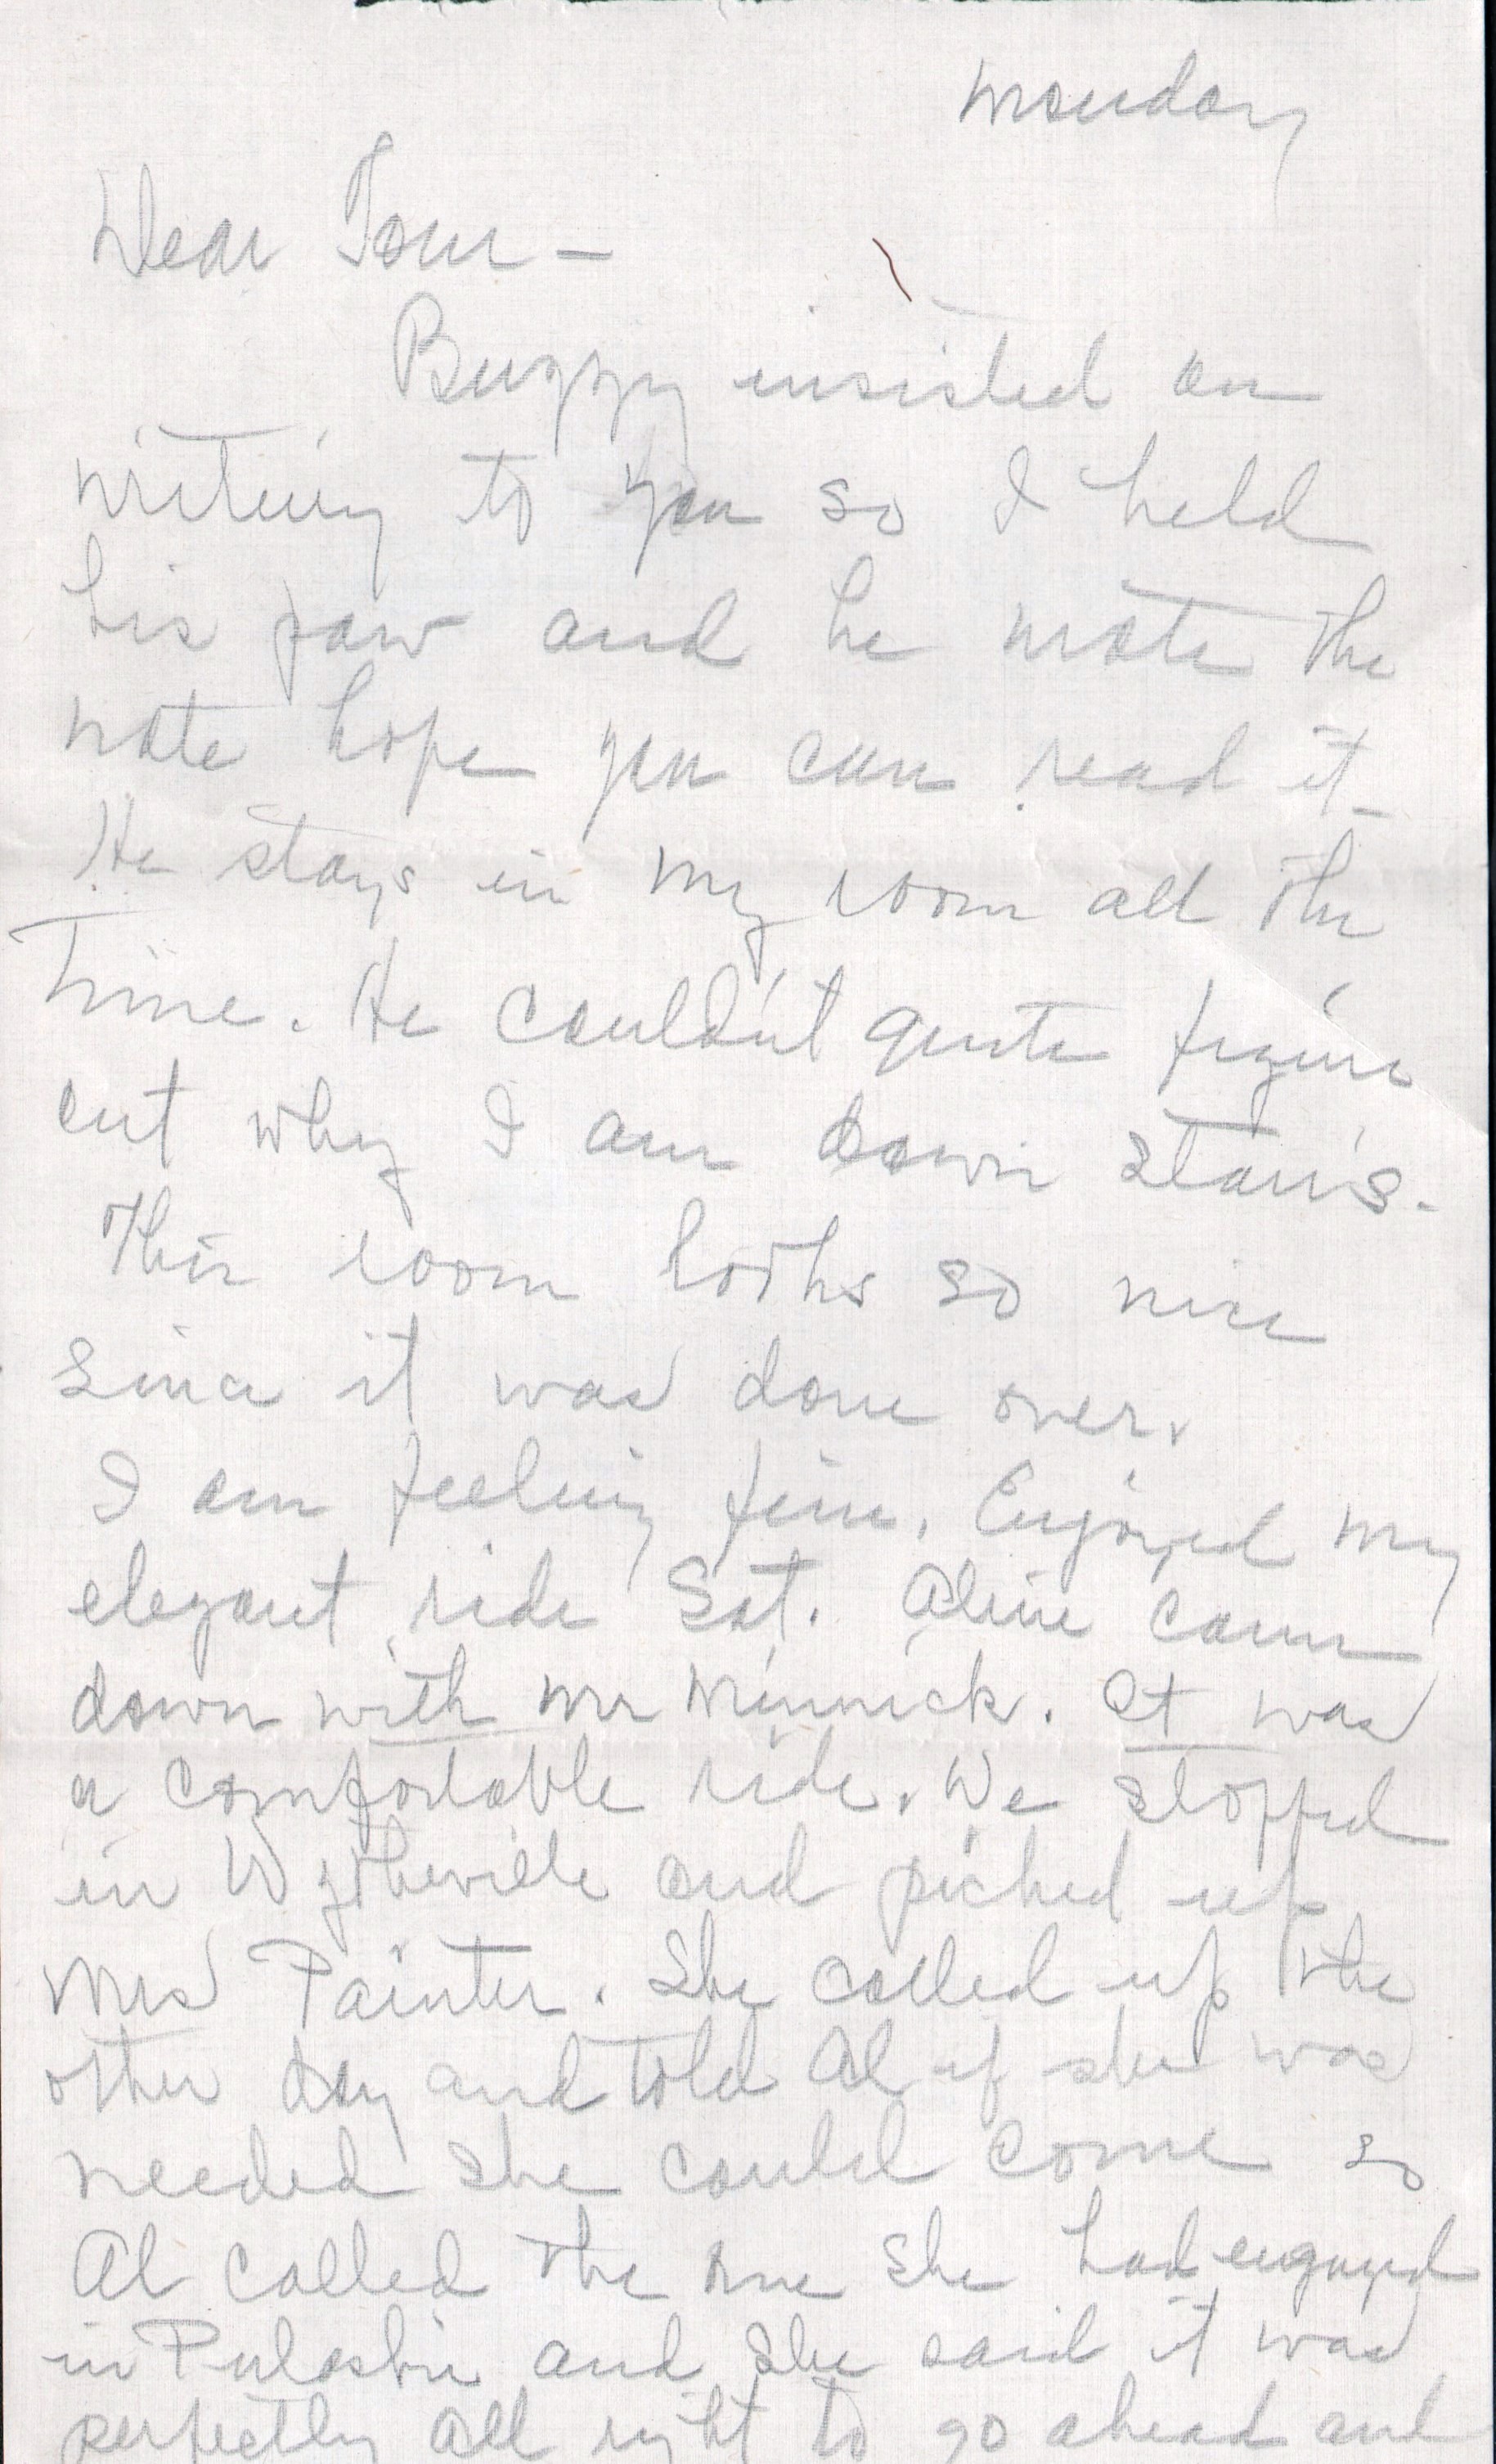 Monday
Dear Tom –
Buzzy insisted on
writing to you so I held
his paw and he wrote the
note hope you can read it –
He stays in my room all the
time. He couldn't quite figure
out why I am down stairs.
This room looks so nice
since it was done over.
I am feeling fine. Enjoyed my
elegant ride Sat. Aline came
down with Mr Minnick. It was
a comfortable ride. We stopped
in Wytheville and picked up
Mrs Painter. She called up the
other day and told Al if she was
needed she could come so
Al called the one she had engaged
in Pulaski and she said it was
perfectly all right to go ahead and